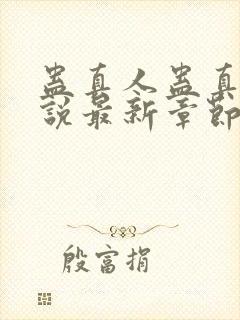 蛊真人蛊真
說最新章節
殷富捐